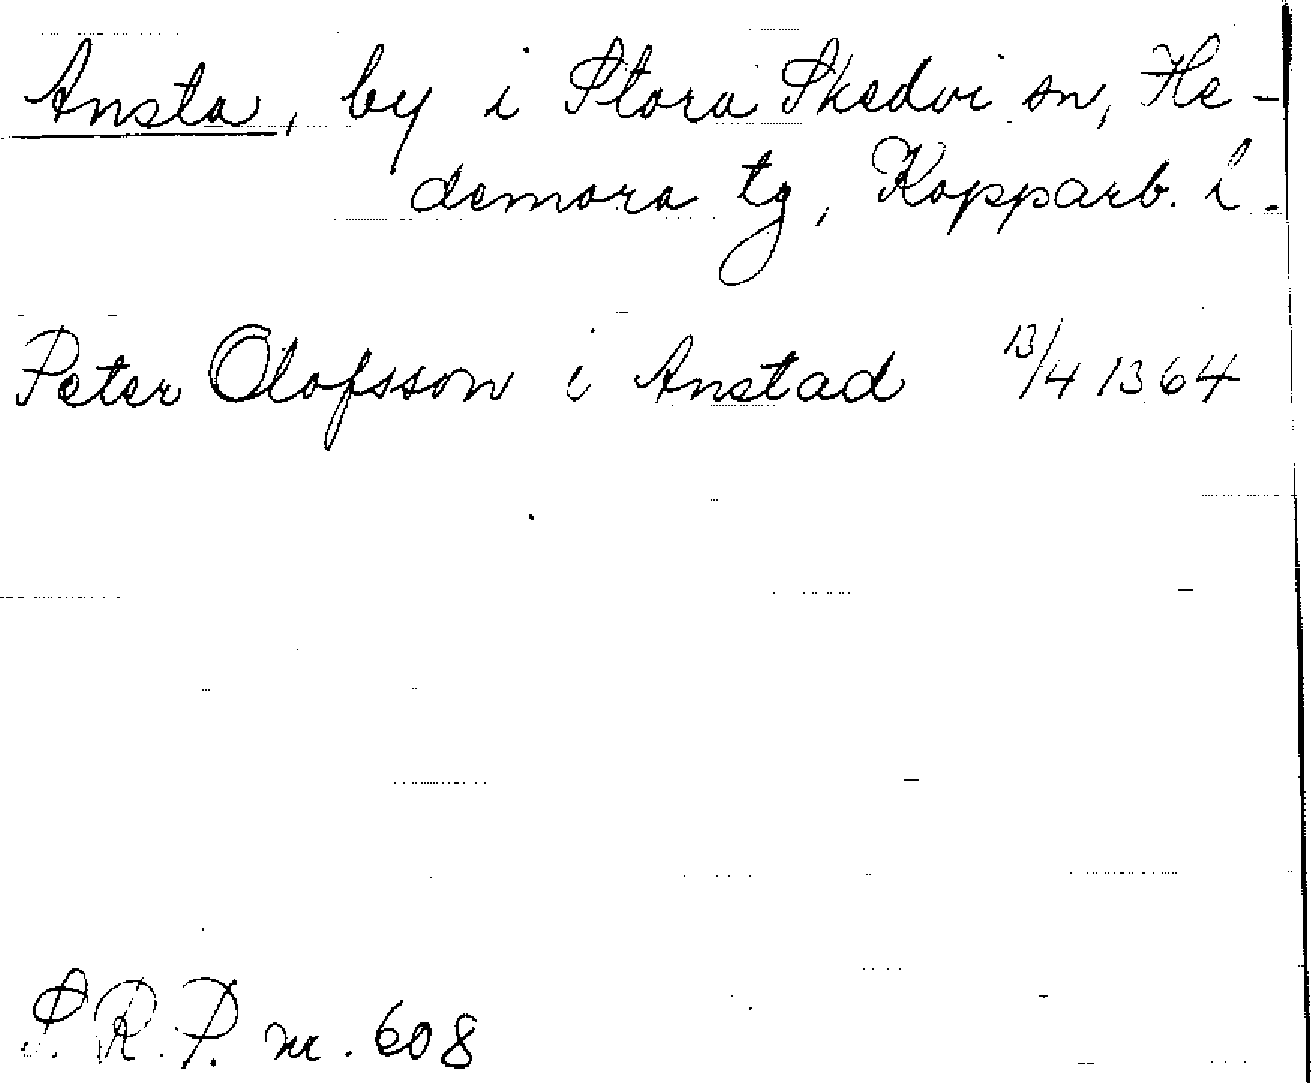 Ansta, by i Stora Skedvi sn, He-
demora tg, Kopparb. l.
Peter Olofsson i Anstad 13/4 1364
S.R.P. nr. 608